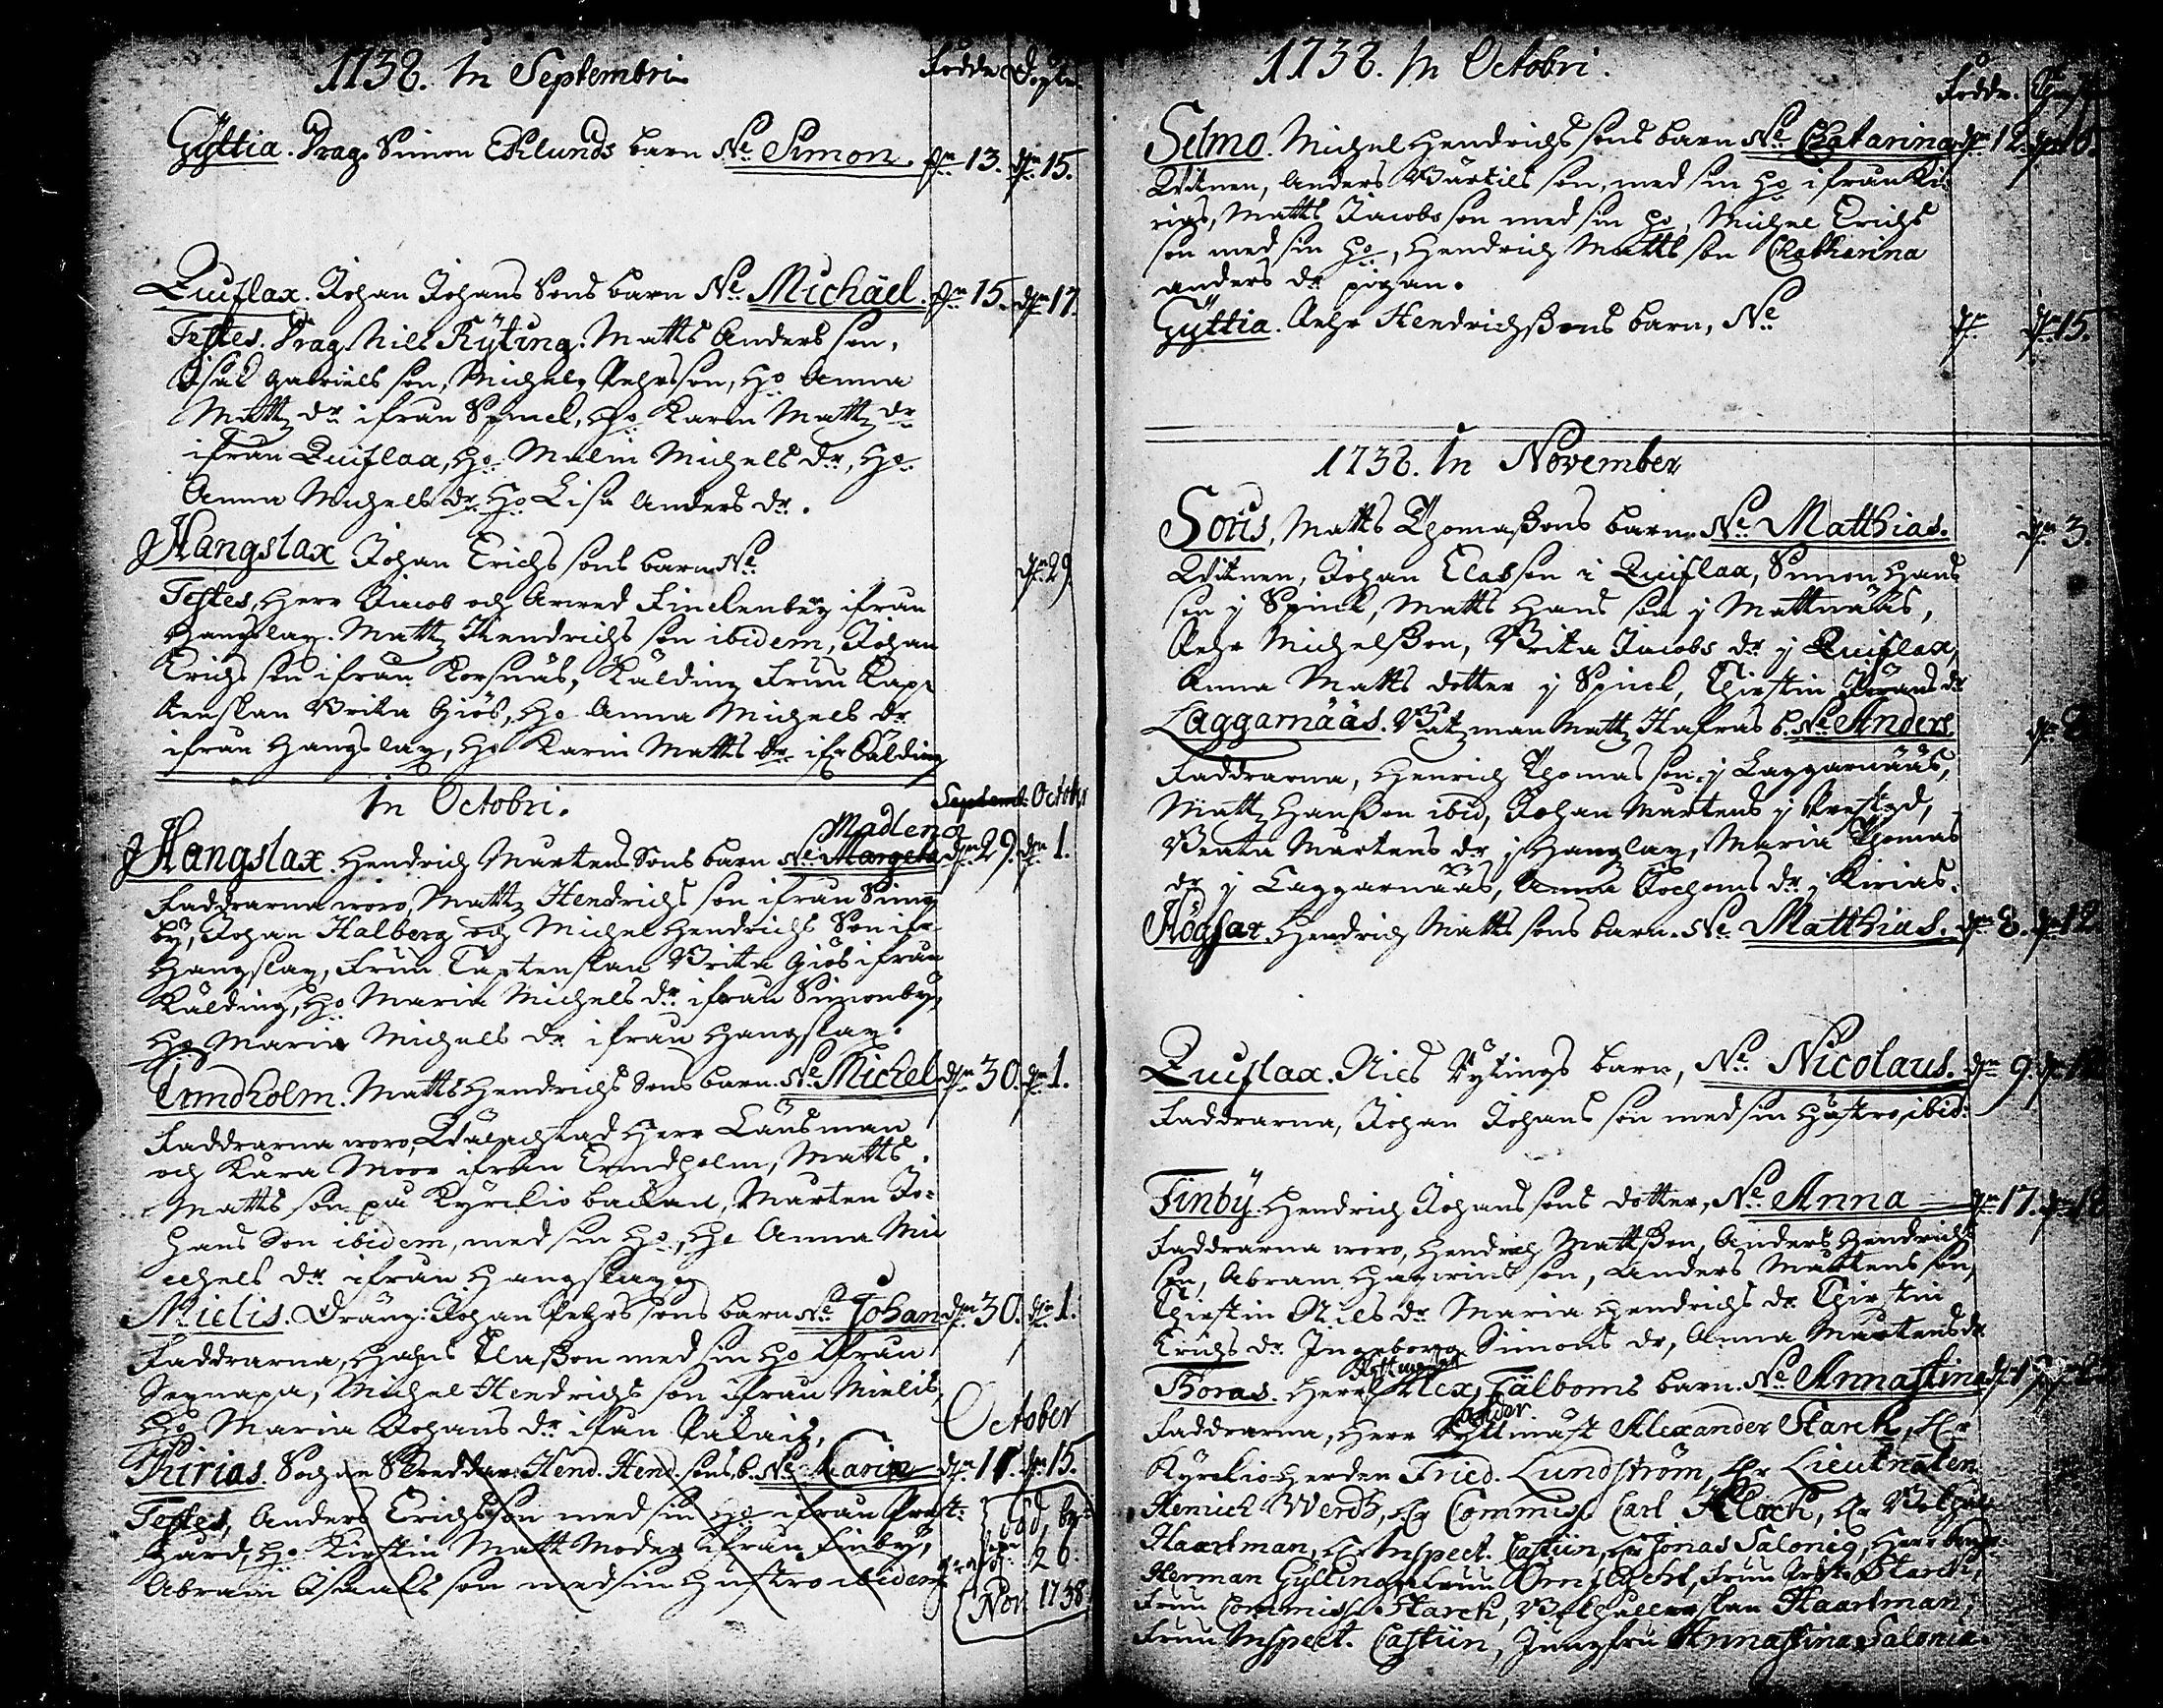 1738. In Septembri
Födde Döpte
Gyttia. Drag. Simon Eklunds barn Ne Simon d:n 13. d:n 15.
Quiflax. Johan Johans Sons barn Ne Michäel. d:n 15. d:n 17.
Testes. Drag. Nils Ryting. Matts Anders son,
Isak Gabriels son, Michel Pehrsson, Ho Anna
Matts dr ifrån Spinel, Ho Karin Matts dr
ifrån Quiflax, Ho Malin Michels dr, Ho
Anna Michels dr Ho Lisa Anders dr.
Hangslax Johan Erichs sons barn Ne d:n 29.
Testes, Herr Jacob och Arved Finckenberg ifrån
Hangslax. Matts Hendrichs son ibidem, Johan
Erichs son ifrån Korsnäs, Kälding Frun Kap-
tenskan Brita Giös, Ho Anna Michels dr
ifrån Hangslax, Ho Karin Matts dr ifr Kälding
In Octobri.
Septemb. Octobr
Madlena
Hangslax. Hendrich Mårtens Sons barn Ne Margeta d:n 29. d:n 1.
Faddrarna woro, Matts Hendrichs son ifrån Simon
by, Johan Halberg och Michel Hendrichs Son ifr
Hangslax, Frun Captenskan Brita Giös ifrån
Kälding, Ho Maria Michels dr ifrån Simonby,
Ho Maria Michels dr ifrån Hangslax.
Ermdholm. Matts Hendrichs Sons barn. Ne Michel d:n 30. d:n 1.
Faddrarna woro, Wälachtad Herr Länsman
och Kära Moor ifrån Ermdholm, Matts
Matts son på Kyrckio backan, Mårten Jo-
hans Son ibidem, med sin Ho, Ho Anna Mi
chels dr ifrån Hangslax
Mielis. Dräng: Johan Pehrs sons barn Ne Johan d:n 30. d:n 1.
Faddrarna, Hans Clasßon med sin Ho ifrån
Sexnapa, Michel Hendrichs son ifrån Mielis,
Ho Maria Johans dr ifrån
October
Kirias. Sochne Skreddar: Hend. Hend. sons b. Ne Carin d:n 11. d:n 15.
Testes, Anders Erichsson med sin Ho ifrån Prest-
gård, Ho Kirstin Matts Moder ifrån Finby,
Abram Isaaks son med sin Hustro ibidem
26.
Nov. 1738
1738. In Octobri.
Födde. Döpte
Selmo. Michel Hendrichs sons barn Ne Chatarina d:n 12. d:n 15.
Witnen, Anders Bärtils son, med sin Ho ifrån Ki-
rias, Matts Jacobs son med sin Ho, Michel Erichs
son med sin Ho, Hendrich Matts son Chatharina
Anders dr pigan.
Gyttia. Pehr Hendrichßons barn, Ne d:n d:n 15.
1738. In November
Soris, Matts Thomaßons barn Ne Matthias. d:n 3.
Witnen, Johan Classon i Quiflax, Simon Hans
son j Spinel, Matts Hans son j Mattnääs,
Pehr Michelßon, Brita Jacobs dr j Quiflax,
Anna Matts dotter j Spinel, Chirstin Jörans dr
Laggarnääs. Båtzman Matts Hafras b. Ne Anders. d:n 8
Faddrarna, Henrich Thomas son j Laggarnääs,
Matts Hanßon ibid, Johan Mårtens j Prestgd,
Beata Mårtens dr j Hangslax, Maria Thomas
dr j Laggarnääs, Anna Jochoms dr j Kirias.
Högsar. Hendrich Matts sons barn. Ne Matthias. d:n 8. d:n 12
Quiflax. Nils Rytings barn, Ne Nicolaus. d:n 9. d:n 12
Faddrarna, Johan Johans son med sin Hustro, ibid:
Finby. Hendrich Johans sons dotter, Ne Anna d:n 17. d:n 18
Faddrarna woro, Hendrich Mattßon, Anders Hendrichs
son, Abram son, Anders Mårtens son,
Chirstin Nils dr Maria Hendrichs dr Chirstin
Erichs dr Ingeborg Simons dr, Anna Mårtens dr
Thoras. Herr Alex, Tälboms barn. Ne Annastina d:n 17
ander
Faddrarna, Herr Ryttmäst Alexander Starck, Hr
Kyrckioherden Fried. Lundström, Hr Lieutnaten
Henrich Werdh, Hr Commiss Carl Kloch, Hr
Haartman, Hr Inspect. Castün, Hr Jonas Salonia, Herr
Herman Gylling, Frun Örnflycht, Frun Starck,
Frun Commiss Starck, Haartman,
Frun Inspect. Castiin, Jungfru Annastina Salonia.